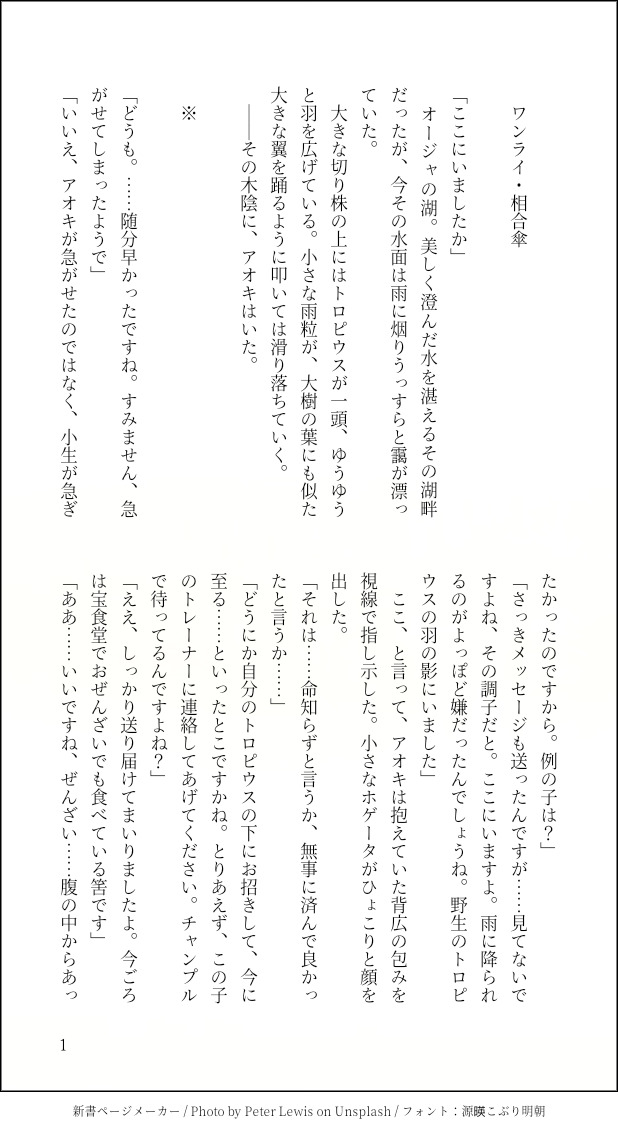 ワンライ・相合傘
「ここにいましたか」
オージャの湖。美しく澄んだ水を湛えるその湖畔
だったが、今その水面は雨に烟りうっすらと靄が漂っ
ていた。
大きな切り株の上にはトロピウスが一頭、ゆうゆう
と羽を広げている。小さな雨粒が、大樹の葉にも似た
大きな翼を踊るように叩いては滑り落ちていく。
――その木陰に、アオキはいた。
※
「どうも。……随分早かったですね。すみません、急
がせてしまったようで」
「いいえ、アオキが急がせたのではなく、小生が急ぎ
たかったのですから。例の子は？」
「さっきメッセージも送ったんですが……見てないで
すよね、その調子だと。ここにいますよ。雨に降られ
るのがよっぽど嫌だったんでしょうね。野生のトロピ
ウスの羽の影にいました」
ここ、と言って、アオキは抱えていた背広の包みを
視線で指し示した。小さなホゲータがひょこりと顔を
出した。
「それは……命知らずと言うか、無事に済んで良かっ
たと言うか……」
「どうにか自分のトロピウスの下にお招きして、今に
至る……といったとこですかね。とりあえず、この子
のトレーナーに連絡してあげてください。チャンプル
で待ってるんですよね？」
「ええ、しっかり送り届けてまいりましたよ。今ごろ
は宝食堂でおぜんざいでも食べている筈です」
「ああ……いいですね、ぜんざい……腹の中からあっ
1
新書ページメーカー / Photo by Peter Lewis on Unsplash / フォント：源暎こぶり明朝